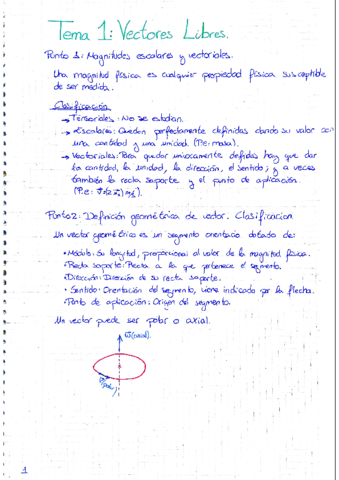 Tema 1: Vectores Libres.
Punto 1: Magnitudes escalares y vectoriales.
Una magnitud física es cualquier propiedad física susceptible
de ser medida.
Clasificación
→ Tensoriales: No se estudian.
→ Escalares: Quedan perfectamente definidas dando su valor con
una cantidad y una unidad. (P.e: masa).
→ Vectoriales: Para quedar unívocamente definidas hay que dar
la cantidad, la unidad, la dirección, el sentido; y a veces
también la recta soporte y el punto de aplicación.
(P.e:
Punto 2: Definición geométrica de vector. Clasificación
Un vector geométrico es un segmento orientado dotado de:
• Módulo: Su longitud, proporcional al valor de la magnitud física.
• Recta soporte: Recta a la que pertenece el segmento.
• Dirección: Dirección de su recta soporte.
• Sentido: Orientación del segmento, viene indicado por la flecha.
• Punto de aplicación: Origen del segmento.
Un vector puede ser polar o axial.
(axial)
1